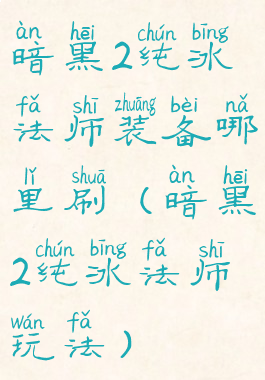 àn hēi chún bīng
暗黑2纯冰
fǎ shī zhuāng bèi nǎ
法师装备哪
lǐ shuā àn hēi
里刷(暗黑
chún bīng fǎ shī
2纯冰法师
wán fǎ
玩法)